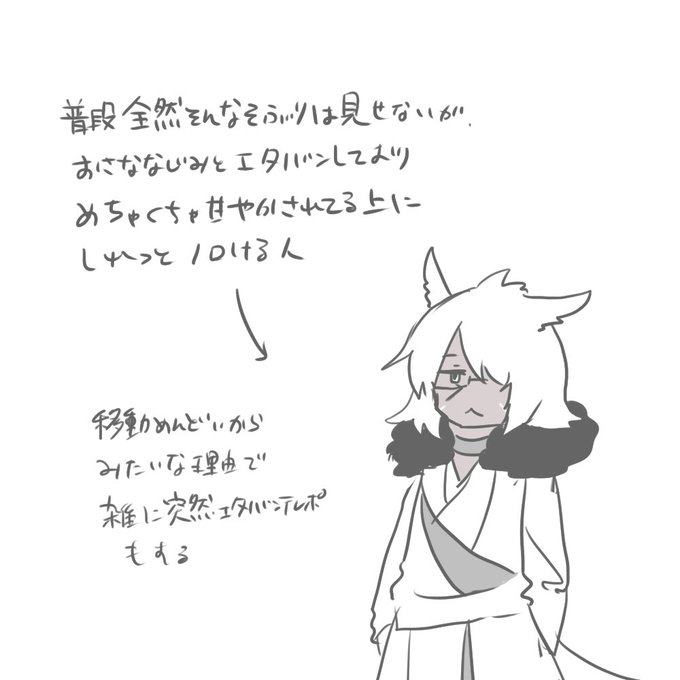 普段全然そんなそぶりは見せないが、
おさななじみとエタバンしており
めちゃくちゃ甘やかされてる上に
しれっとノロける人
移動めんどいから
みたいな理由で
雑に突然エタバンテレポ
もする